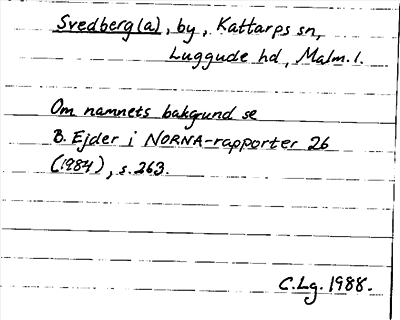 Svedberg(a), by, Kattarps sn,
Luggude hd, Malm. l.
Om namnets bakgrund se
B. Ejder i NORNA-rapporter 26
(1984), s. 263.
C.Lg. 1988.